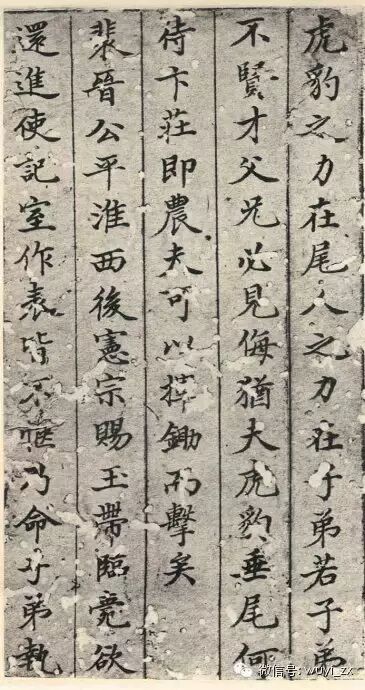 虎豹之力在尾人之力在子弟若子弟
不賢才父兄必見侮猶大虎豹垂尾何
待卞莊即農夫可以揮鋤而擊矣
裴晉公平淮西後憲宗賜玉帶臨薨欲
還進使記室作表皆不愜乃命子弟執
微信号: wuyi_zx